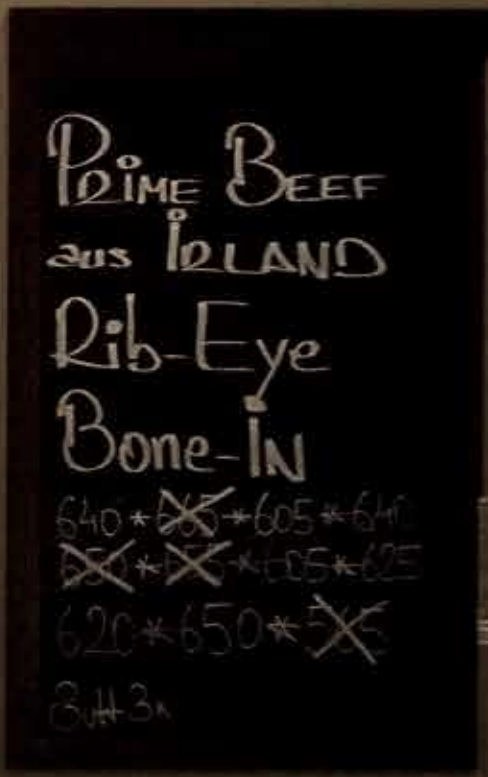 PRIME BEEF
aus IRLAND
Rib-Eye
Bone-IN
640 * 665 * 605 * 640
650 * 655 * 605 * 625
620 * 650 * 565
Butt 3x